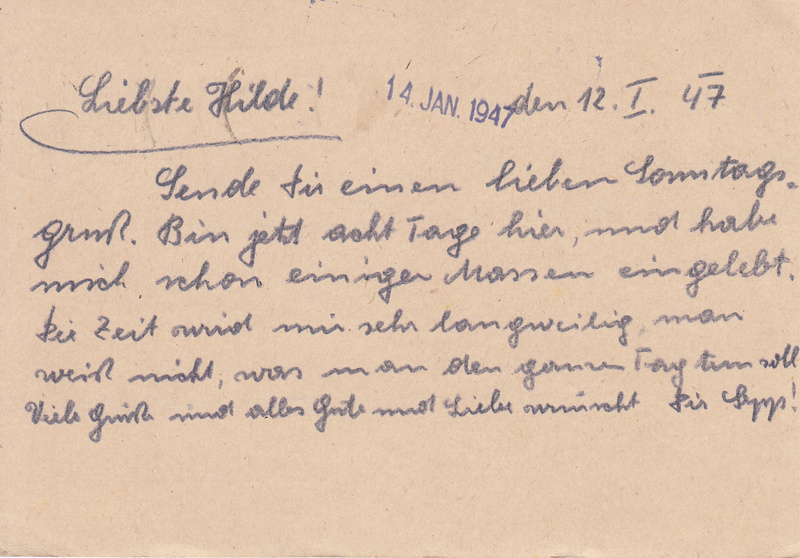 Liebste Hilde! 14. JAN. 1947 den 12. I. 47
Sende Dir einen lieben Sonntags-
gruß. Bin jetzt acht Tage hier, und habe
mich schon einiger Massen eingelebt.
Die Zeit wird mir sehr langweilig, man
weiß nicht, was man den ganzen Tag tun soll
Viele Grüße und alles Gute und Liebe wünscht Dir Sepp!